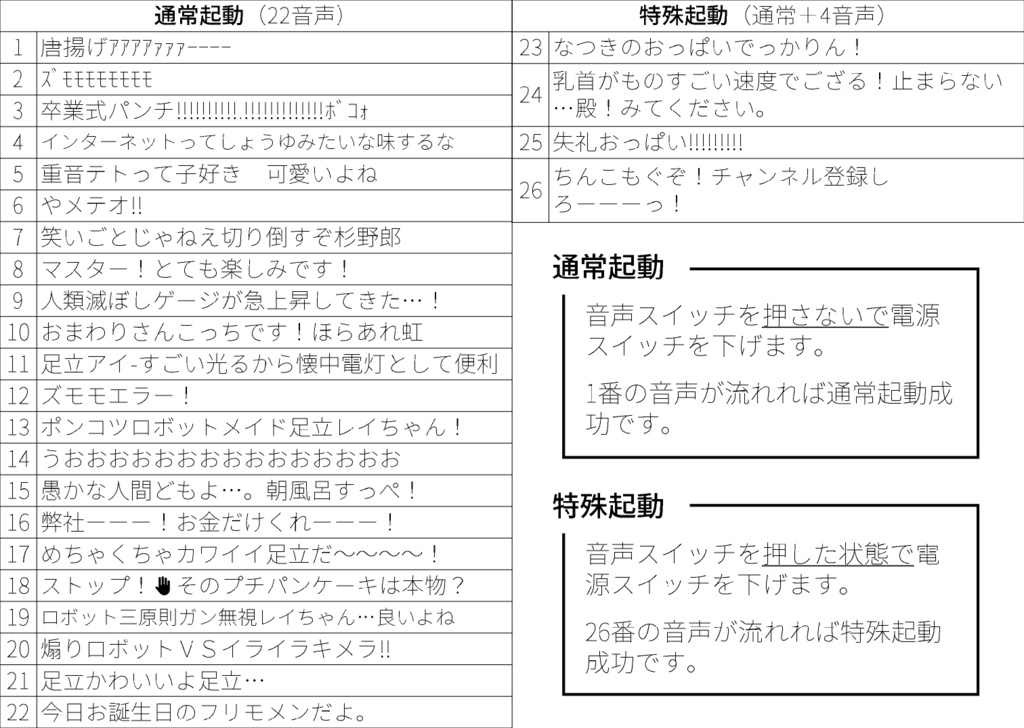 通常起動（22音声）
1 唐揚げｱｱｱｱｧｧｧｰｰｰｰ
2 ｽﾞﾓﾓﾓﾓﾓﾓﾓﾓ
3 卒業式パンチ!!!!!!!!!!!.!!!!!!!!!!!!!!ﾎﾞｺｫ
4 インターネットってしょうゆみたいな味するな
5 重音テトって子好き　可愛いよね
6 やメテオ!!
7 笑いごとじゃねえ切り倒すぞ杉野郎
8 マスター！とても楽しみです！
9 人類滅ぼしゲージが急上昇してきた…！
10 おまわりさんこっちです！ほらあれ虹
11 足立アイ-すごい光るから懐中電灯として便利
12 ズモモエラー！
13 ポンコツロボットメイド足立レイちゃん！
14 うおおおおおおおおおおおおおおお
15 愚かな人間どもよ…。朝風呂すっぺ！
16 弊社ーーー！お金だけくれーーー！
17 めちゃくちゃカワイイ足立だ～～～～！
18 ストップ！✋そのプチパンケーキは本物？
19 ロボット三原則ガン無視レイちゃん…良いよね
20 煽りロボットＶＳイライラキメラ!!
21 足立かわいいよ足立…
22 今日お誕生日のフリモメンだよ。
特殊起動（通常＋4音声）
23 なつきのおっぱいでっかりん！
24 乳首がものすごい速度でござる！止まらない
…殿！みてください。
25 失礼おっぱい!!!!!!!!!
26 ちんこもぐぞ！チャンネル登録し
ろーーーっ！
通常起動
音声スイッチを押さないで電源
スイッチを下げます。
1番の音声が流れれば通常起動成
功です。
特殊起動
音声スイッチを押した状態で電
源スイッチを下げます。
26番の音声が流れれば特殊起動
成功です。